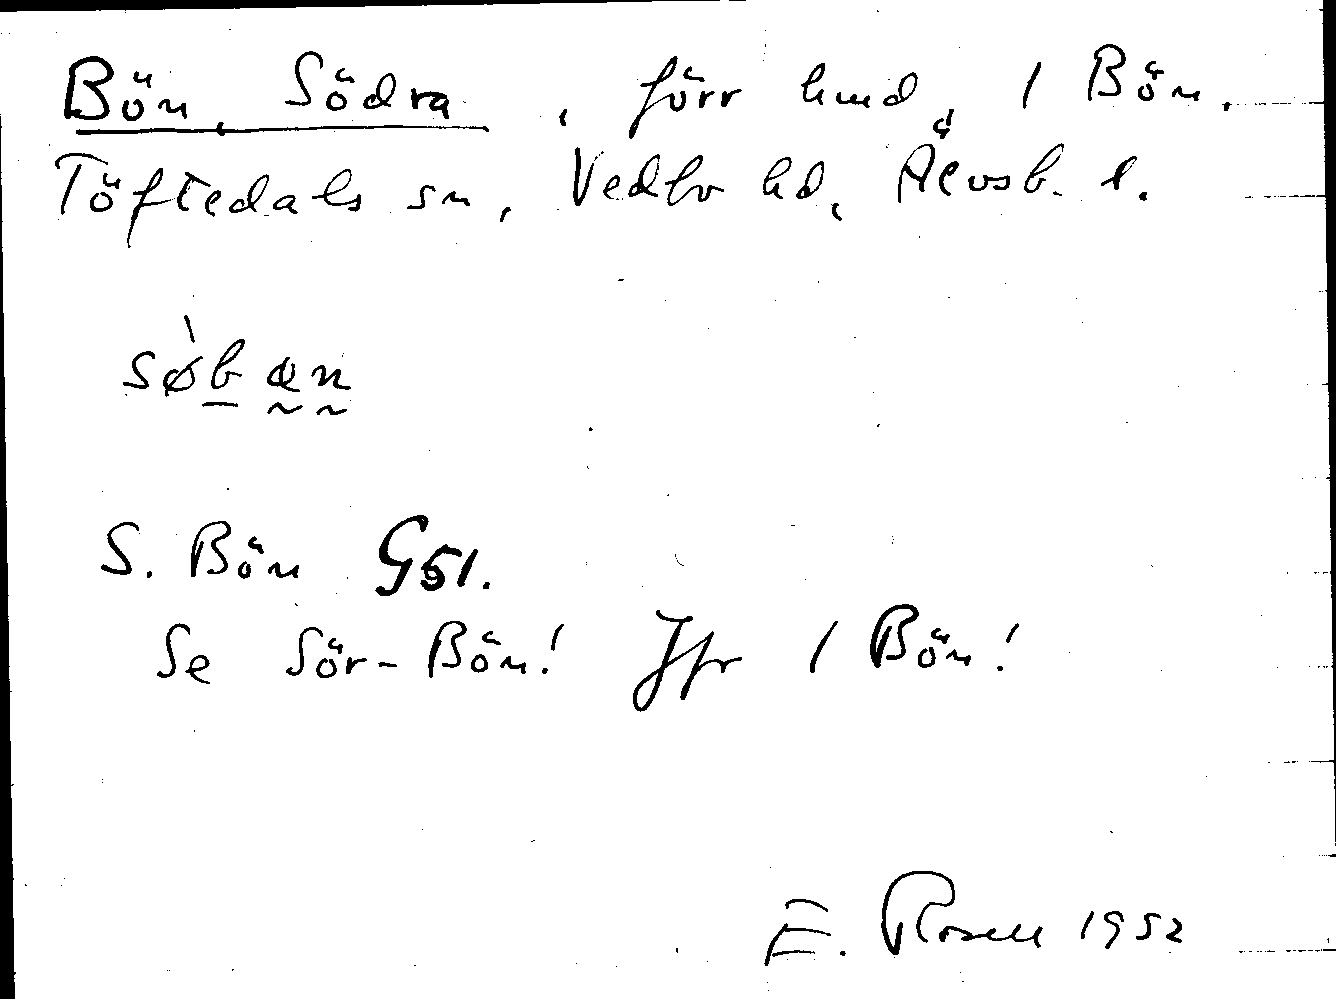 Bön, Södra, förr hmd, 1 Bön.
Töftedals sn, Vedbo hd, Älvsb. l.
søb
S. Bön G51.
Se Sör-Bön! Jfr 1 Bön!
E. Rosell 1952